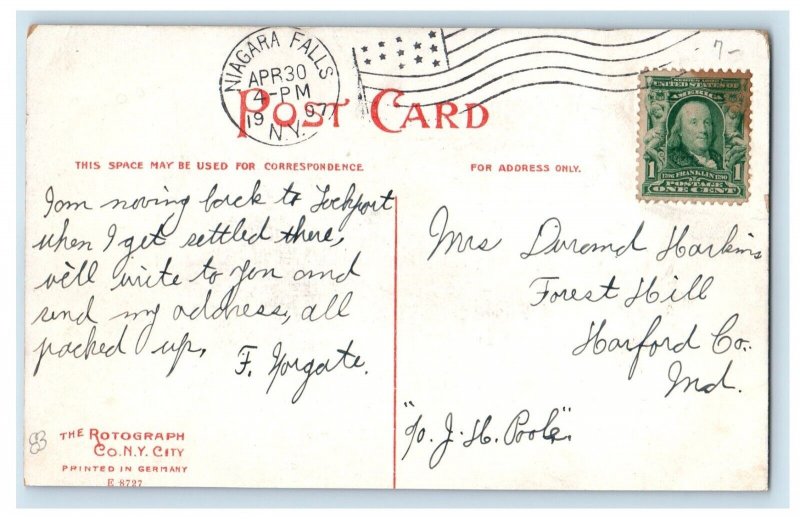 NIAGARA FALLS
APR 30
4-PM
1907
N.Y.
-7-
POST CARD
UNITED STATES OF
AMERICA
1 FRANKLIN 1
POSTAGE
ONE CENT
THIS SPACE MAY BE USED FOR CORRESPONDENCE
FOR ADDRESS ONLY.
I am moving back to Lockport
when I get settled there,
will write to you and
send my address, all
packed up.
F. Norgate.
Mrs Durand Harkins
Forest Hill
Harford Co.
Md.
"c/o. J. H. Poole".
83
THE ROTOGRAPH
CO. N.Y. CITY
PRINTED IN GERMANY
E 8727